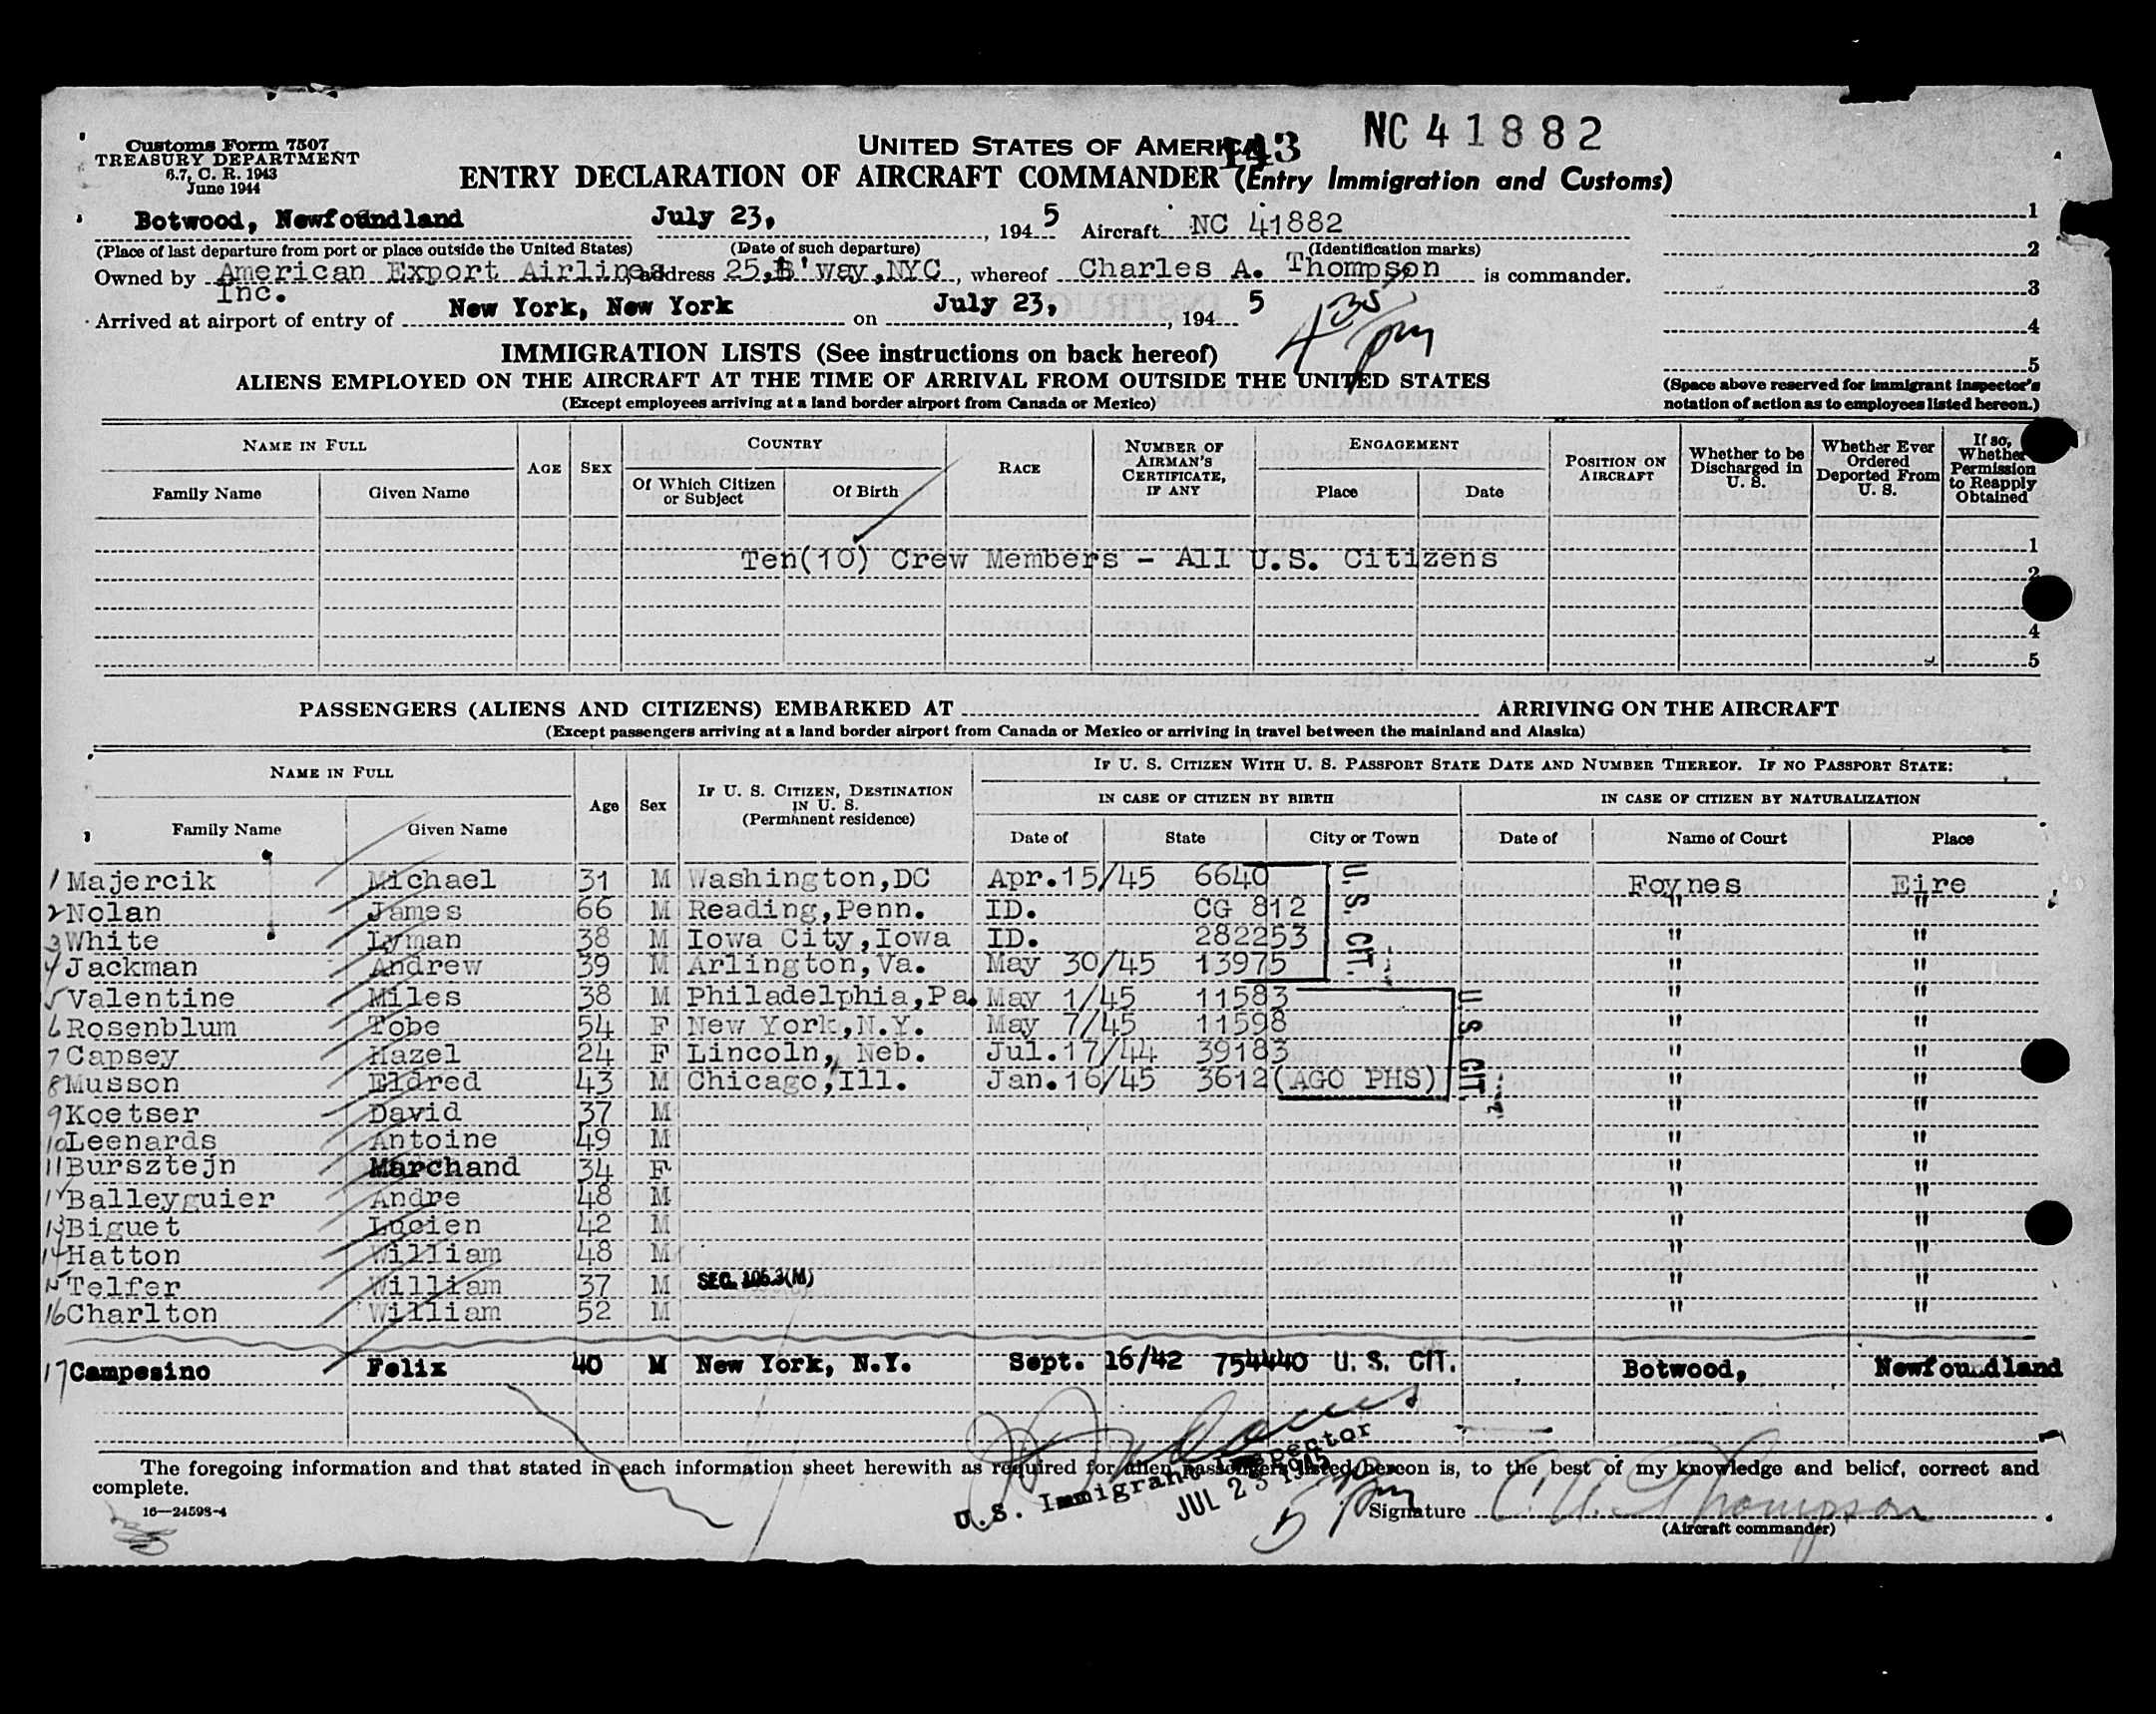 Customs Form 7507
TREASURY DEPARTMENT
6.7, C. R. 1943
June 1944
UNITED STATES OF AMERICA
143
NC 41882
ENTRY DECLARATION OF AIRCRAFT COMMANDER (Entry Immigration and Customs)
Botwood, Newfoundland July 23, , 194 5 Aircraft NC 41882
(Place of last departure from port or place outside the United States) (Date of such departure) (Identification marks)
Owned by American Export Airlines, address 25, B'way, NYC, whereof Charles A. Thompson is commander.
Inc.
Arrived at airport of entry of New York, New York on July 23, , 194 5
4 35 pm
1
2
3
4
5
(Space above reserved for immigrant inspector's
notation of action as to employees listed hereon.)
IMMIGRATION LISTS (See instructions on back hereof)
ALIENS EMPLOYED ON THE AIRCRAFT AT THE TIME OF ARRIVAL FROM OUTSIDE THE UNITED STATES
(Except employees arriving at a land border airport from Canada or Mexico)
NAME IN FULL
Family Name Given Name
AGE SEX
COUNTRY
Of Which Citizen or Subject Of Birth
RACE
NUMBER OF AIRMAN'S CERTIFICATE, IF ANY
ENGAGEMENT
Place Date
POSITION ON AIRCRAFT
Whether to be Discharged in U. S.
Whether Ever Ordered Deported From U. S.
If so, Whether Permission to Reapply Obtained
1
Ten(10) Crew Members - All U.S. Citizens
2
4
5
PASSENGERS (ALIENS AND CITIZENS) EMBARKED AT ARRIVING ON THE AIRCRAFT
(Except passengers arriving at a land border airport from Canada or Mexico or arriving in travel between the mainland and Alaska)
NAME IN FULL
Family Name Given Name
Age Sex
IF U. S. CITIZEN, DESTINATION IN U. S.
(Permanent residence)
IF U. S. CITIZEN WITH U. S. PASSPORT STATE DATE AND NUMBER THEREOF. IF NO PASSPORT STATE:
IN CASE OF CITIZEN BY BIRTH IN CASE OF CITIZEN BY NATURALIZATION
Date of State City or Town Date of Name of Court Place
1 Majercik Michael 31 M Washington,DC Apr.15/45 6640 Foynes Eire
2 Nolan James 66 M Reading,Penn. ID. CG 812 " "
3 White Lyman 38 M Iowa City,Iowa ID. 282253 " "
4 Jackman Andrew 39 M Arlington,Va. May 30/45 13975 " "
U. S. CIT.
5 Valentine Miles 38 M Philadelphia,Pa. May 1/45 11583 " "
6 Rosenblum Tobe 54 F New York,N.Y. May 7/45 11598 " "
7 Capsey Hazel 24 F Lincoln, Neb. Jul.17/44 39183 " "
8 Musson Eldred 43 M Chicago,Ill. Jan.16/45 3612(AGO PHS) " "
U. S. CIT.
9 Koetser David 37 M " "
10 Leenards Antoine 49 M " "
11 Bursztejn Marchand 34 F " "
12 Balleyguier Andre 48 M " "
13 Biguet Lucien 42 M " "
14 Hatton William 48 M " "
15 Telfer William 37 M SEC. 105.3(M) " "
16 Charlton William 52 M " "
17 Campesino Felix 40 M New York, N.Y. Sept. 16/42 754440 U. S. CIT. Botwood, Newfoundland
The foregoing information and that stated in each information sheet herewith as required for alien passengers listed hereon is, to the best of my knowledge and belief, correct and
complete.
16—24598-4
U.S. Immigrant Inspector
JUL 23 1945
5 pm
Signature C. A. Thompson
(Aircraft commander)